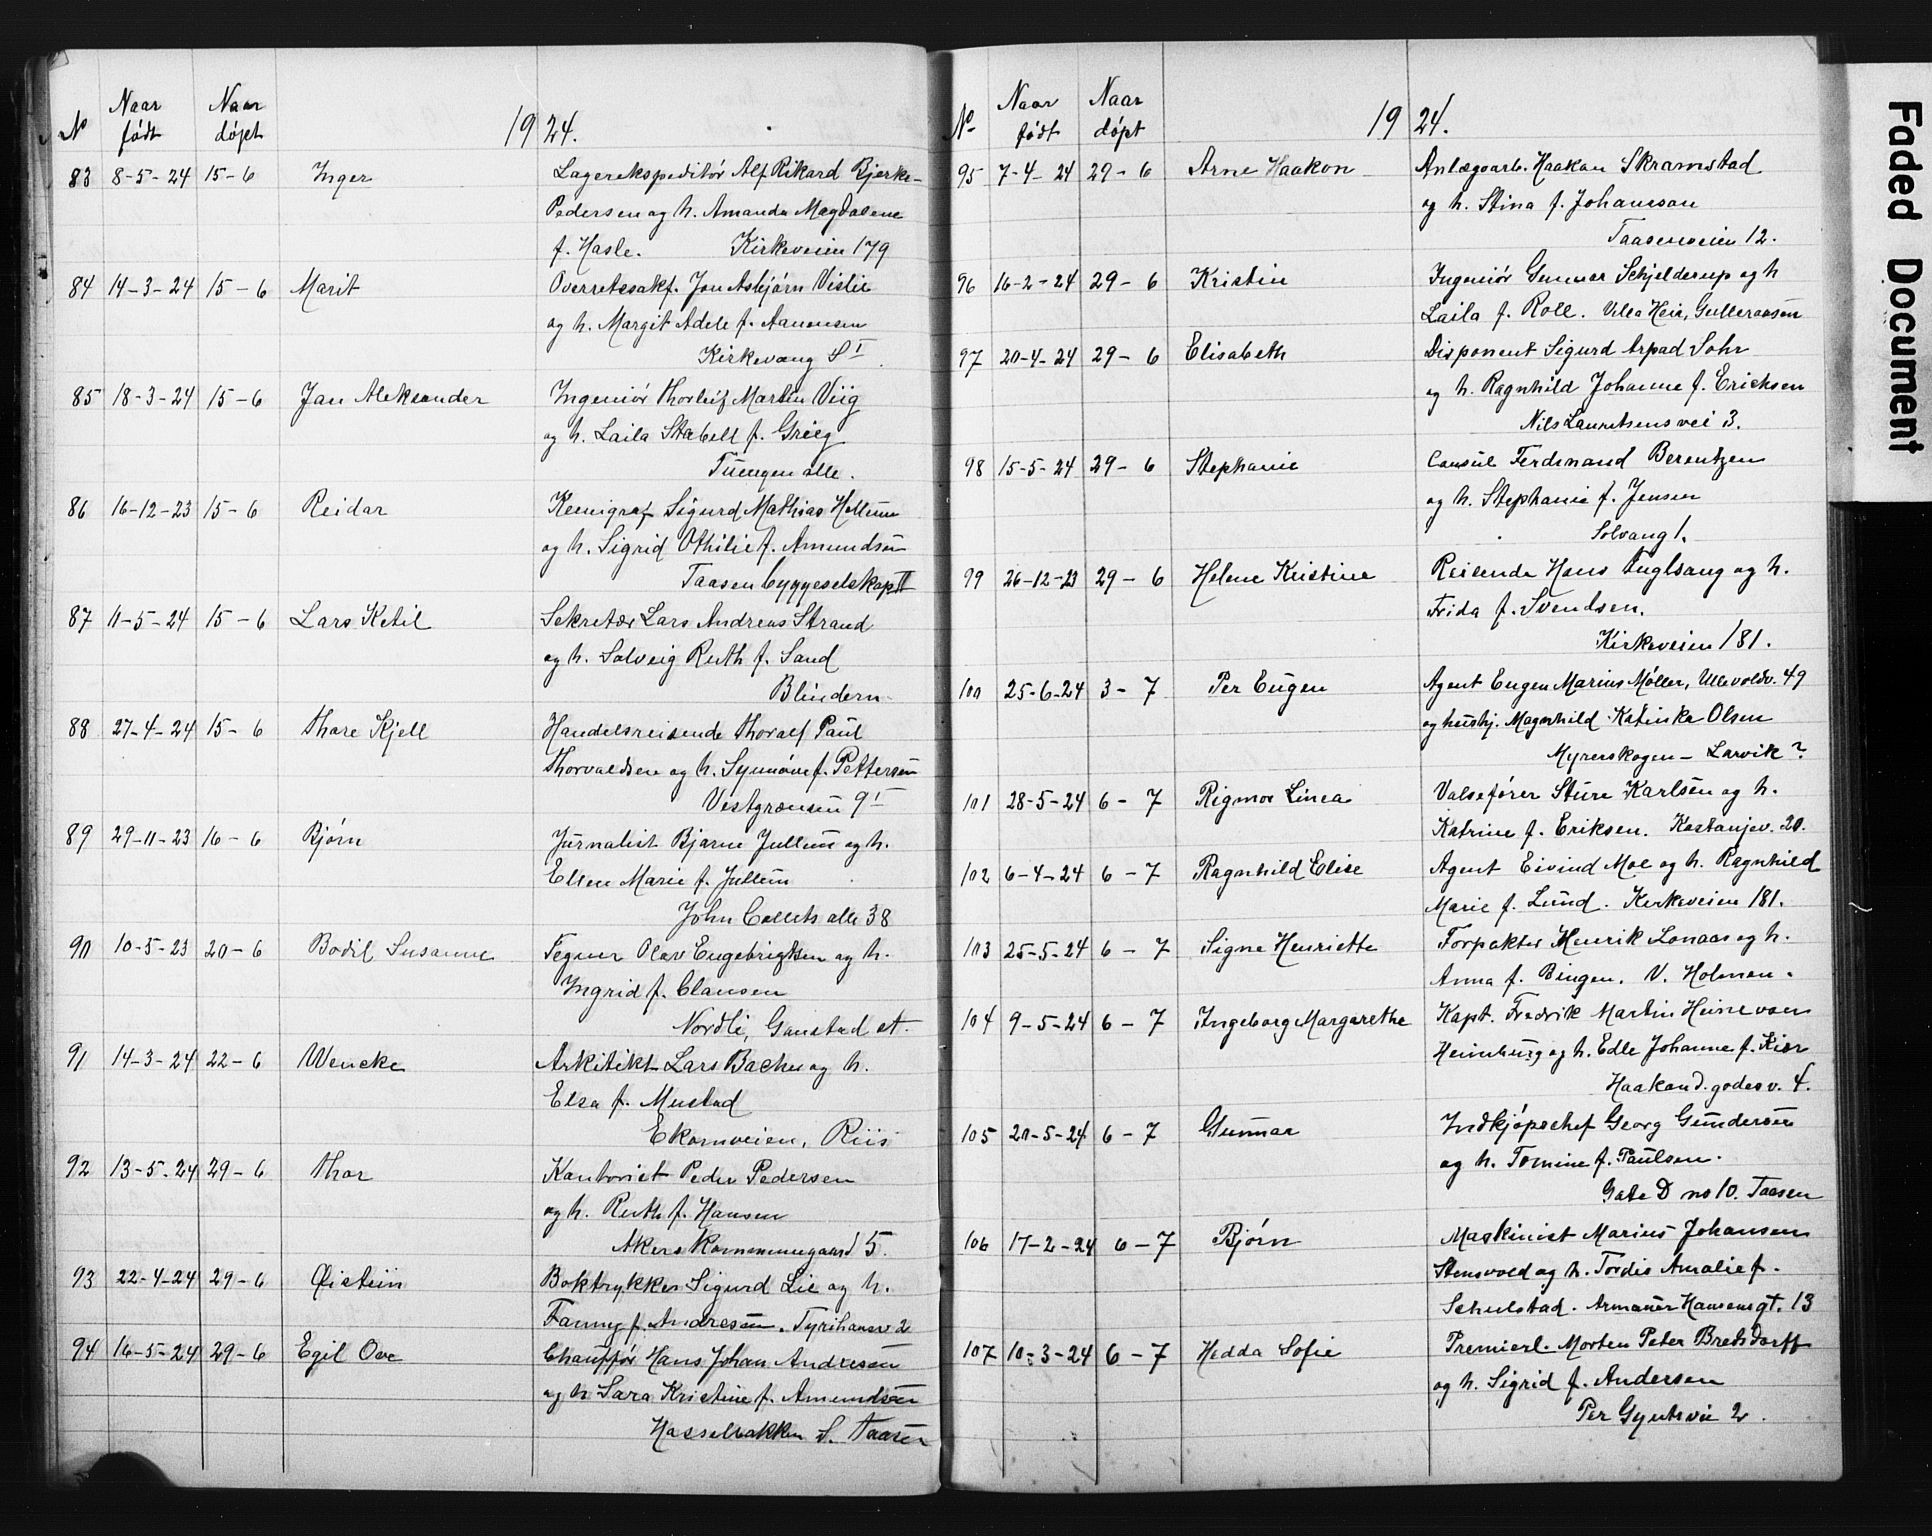 N° Naar født Naar døpt 1924.
83 8-5-24 15-6 Inger Lagerekspeditør Alf Rikard Bjerke-
Pedersen og h. Amanda Magdalene
f. Hasle. Kirkeveien 179
84 14-3-24 15-6 Marit Overretssakf. Jon Asbjørn Vislie
og h. Margit Adele f. Aanonsen
Kirkevang SI
85 18-3-24 15-6 Jan Aleksander Ingeniør Thorleif Martin Viig
og h. Laila Stabell f. Grieg
Tuengen alle.
86 16-12-23 15-6 Reidar Kemigraf Sigurd Mathias Hellum
og h. Sigrid Othilie f. Amundsen
Taasen byggeselskap II
87 11-5-24 15-6 Lars Ketil Sekretær Lars Andreas Strand
og h. Solveig Ruth f. Sand
Blindern
88 27-4-24 15-6 Thore Kjell Handelsreisende Thoralf Paul
Thorvaldsen og h. Synnøve f. Pettersen
Vestgrænsen 9 I
89 29-11-23 16-6 Bjørn Jurnalist Bjarne Jullum og h.
Ellen Marie f. Jullum
John Colletts alle 38
90 10-5-23 20-6 Bodil Susanne Tegner Olav Engebrigtsen og h.
Ingrid f. Clausen
Nordli, Gaustad st.
91 14-3-24 22-6 Wencke Arkitekt Lars Backer og h.
Elsa f. Mustad
Ekornveien, Riis
92 13-5-24 29-6 Thor Kontorist Peder Pedersen
og h. Ruth f. Hansen
Akers Kommunegaard 5.
93 22-4-24 29-6 Øistein Boktrykker Sigurd Lie og h.
Fanny f. Andresen. Tyrihansv 2
94 16-5-24 29-6 Egil Ove Chauffør Hans Johan Andresen
og h Sara Kristine f. Amundsen
Hasselbakken S. Taasen
N° Naar født Naar døpt 1924.
95 7-4-24 29-6 Arne Haakon Anlægsarb. Haakon Skramstad
og h. Stina f. Johansson
Taasenveien 12.
96 16-2-24 29-6 Kristin Ingeniør Gunnar Schjelderup og h
Laila f. Roll. Villa Heir, Gulleraasen
97 20-4-24 29-6 Elisabeth Disponent Sigurd Arpad Sohr
og h. Ragnhild Johanne f. Ericksen
Nils Lauritsens vei 3.
98 15-5-24 29-6 Stephanie Consul Ferdinand Berentzen
og h. Stephanie f. Jensen
Solvang 1.
99 26-12-23 29-6 Helene Kristine Reisende Hans Fuglsang og h.
Frida f. Svendsen.
Kirkeveien 181.
100 25-6-24 3-7 Per Eugen Agent Eugen Marius Møller, Ullevoldv. 49
og hushj. Magnhild Katinka Olsen
Myrerskogen - Larvik?
101 28-5-24 6-7 Rigmor Linea Valsefører Sture Karlsen og h.
Katrine f. Eriksen. Kastanjev. 20.
102 6-4-24 6-7 Ragnhild Elise Agent Eivind Moe og h. Ragnhild
Marie f. Lund. Kirkeveien 181.
103 25-5-24 6-7 Signe Henriette Forpakter Henrik Lonaas og h.
Anna f. Bingen. V. Holmen.
104 9-5-24 6-7 Ingeborg Margarethe Kapt. Fredrik Martin Heine von
Heimburg og h. Edle Johanne f. Kiær
Haakon d. godes v. 4.
105 20-5-24 6-7 Gunnar Indkjøpschef Georg Gundersen
og h. Tomine f. Paulsen.
Gate D no 10. Taasen
106 17-2-24 6-7 Bjørn Maskinist Marius Johansen
Stensvold og h. Tordis Amalie f.
Schulstad. Armauer Hansensgt. 13
107 10-3-24 6-7 Hedda Sofie Premierl. Morten Peter Bredsdorff
og h. Sigrid f. Andersen
Per Gyntsvei 2.
Faded Document